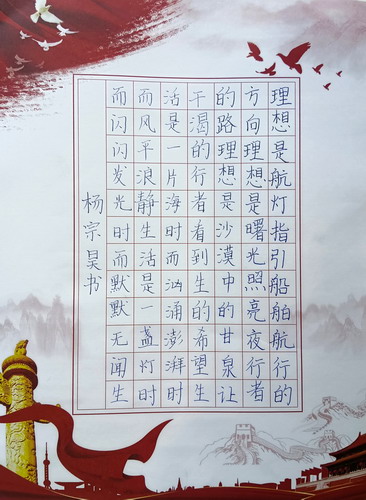 理想是航灯指引船舶航行的
方向理想是曙光照亮夜行者
的路理想是沙漠中的甘泉让
干渴的行者看到生的希望生
活是一片海时而汹涌澎湃时
而风平浪静生活是一盏灯时
而闪闪发光时而默默无闻生
杨宗昊书